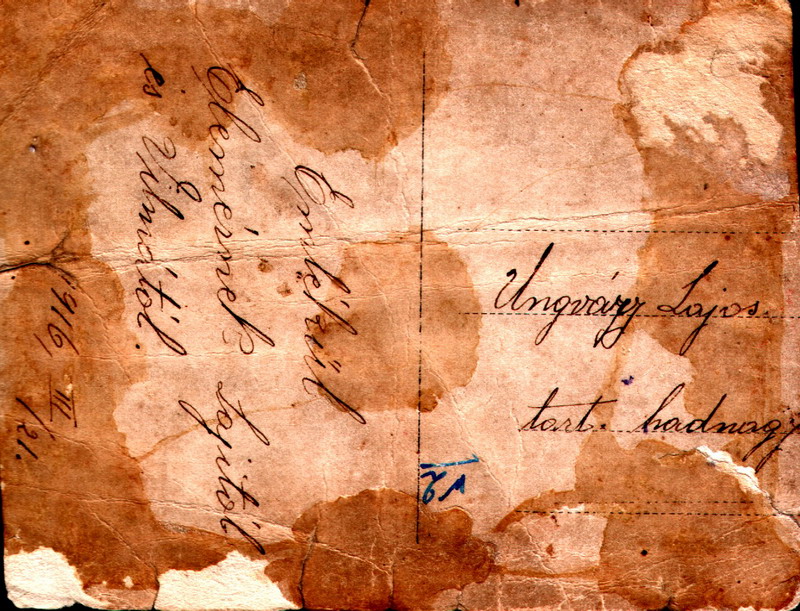 Emlékül
Elemérnek Lajitól
és Vilmától.
916, III/21.
Ungváry Lajos.
tart. hadnagy